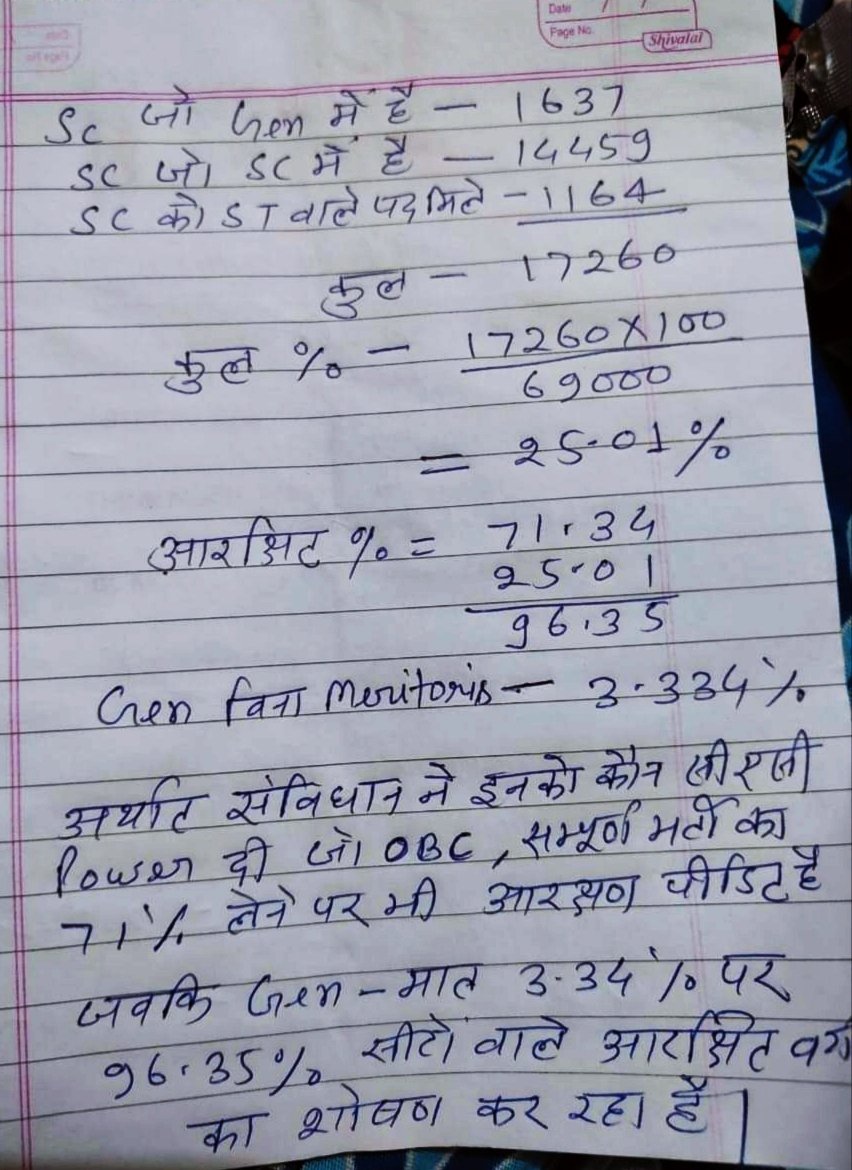 Date
Page No.
Shivalal
SC जो Gen में है - 1637
SC जो SC में है - 14459
SC को ST वाले पद मिले - 1164
कुल - 17260
कुल % - 17260X100
69000
= 25.01%
आरक्षित % = 71.34
25.01
96.35
Gen बिना Meritoris - 3.334%
अर्थात संविधान ने इनको कौन सी एसी
Power दी जो OBC, सम्पूर्ण भर्ती का
71% लेने पर भी आरक्षण पीडित है
जबकि Gen - मात्र 3.34% पर
96.35% सीटों वाले आरक्षित वर्ग
का शोषण कर रहा है|